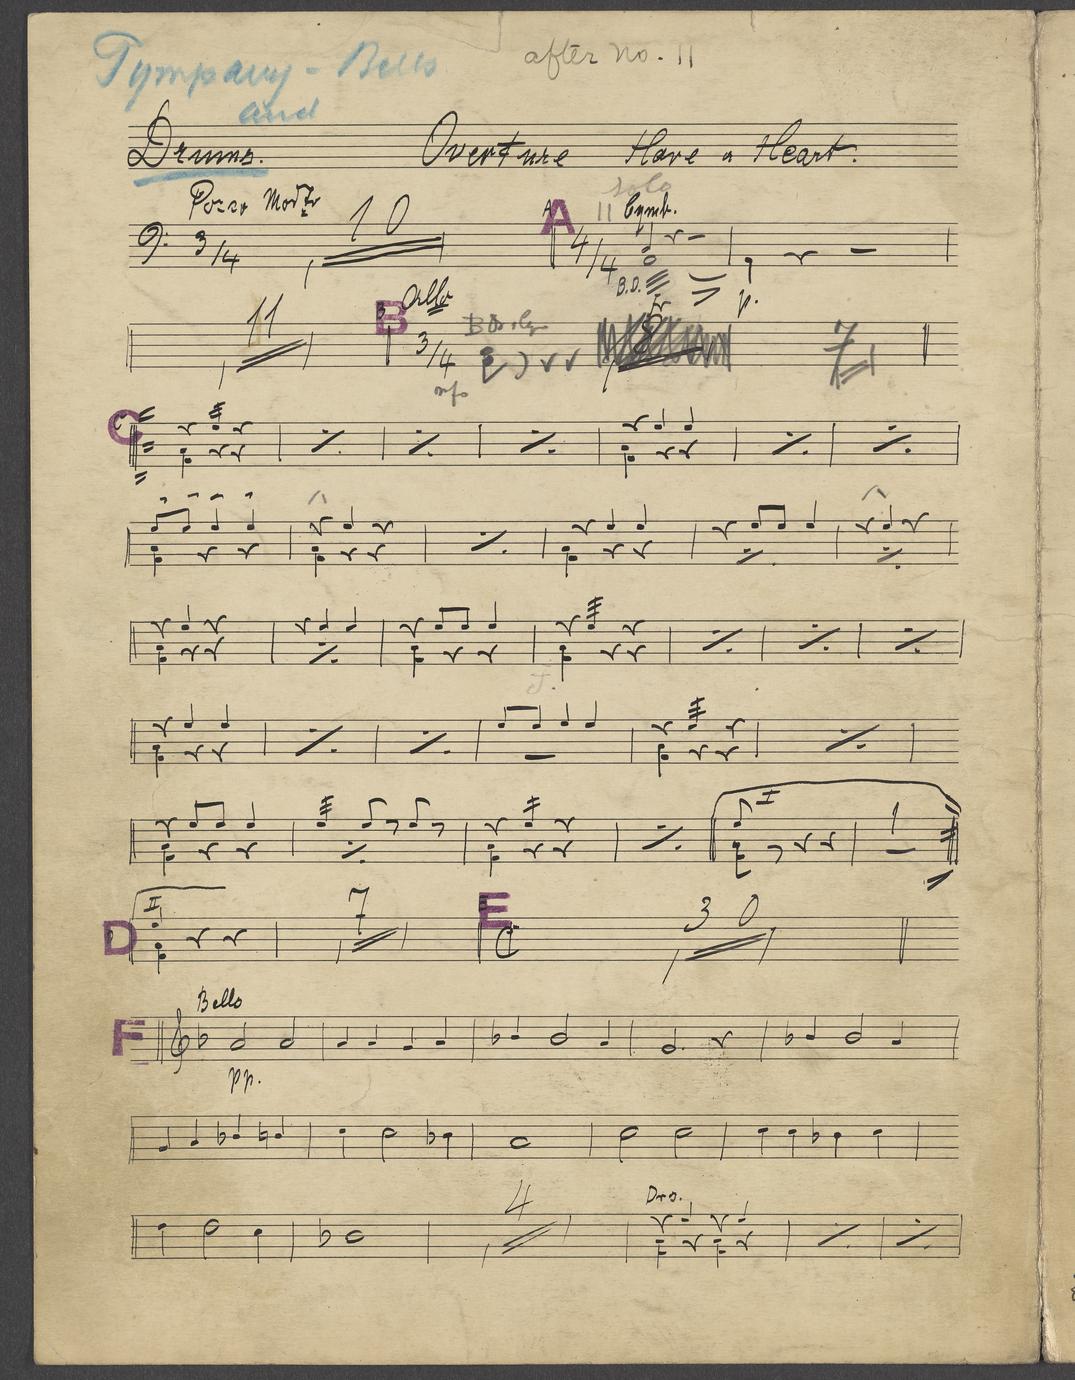 Tympany - Bells
and
after no. 11
Drums. Overture Have a Heart.
solo
Pocco Modto 10 A 11 Cymb.
3/4 4/4
B.D. p.
11 B Allo 7
3/4 Bells
mf
C
D II 7 E 30
I 1
F Bells
pp.
4 Drs.